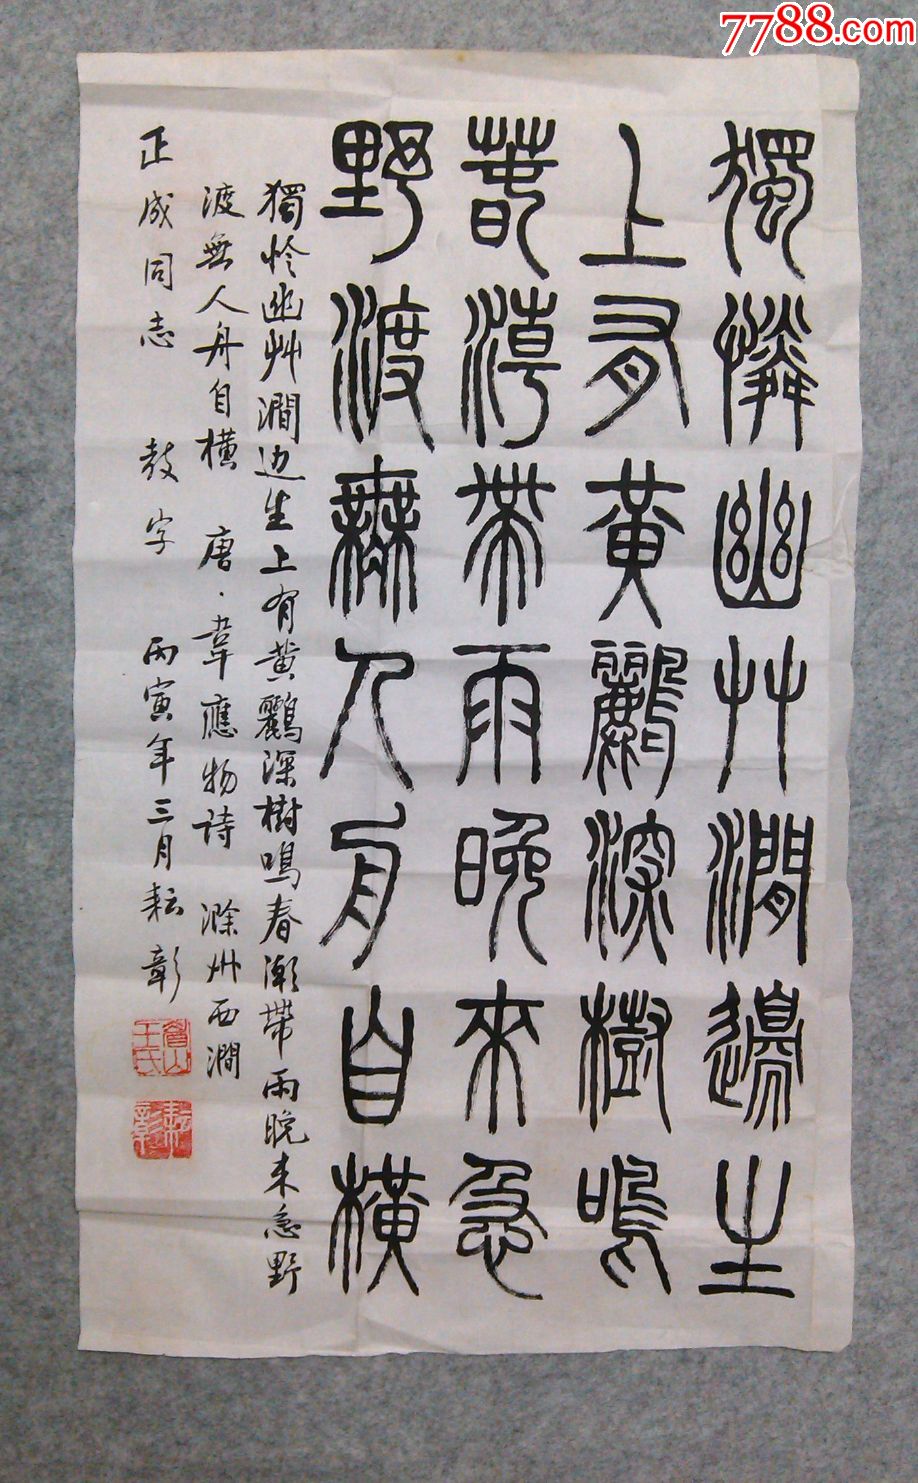 7788.com
獨憐幽艸澗邊生
上有黃鸝深樹鳴
春潮帶雨晚來急
野渡無人舟自橫
獨怜幽艸澗边生上有黄鸝深樹鳴春潮帶雨晚来急野
渡無人舟自横 唐·韋應物詩 滁州西澗
正成同志 教字 丙寅年三月耘彰
王氏
耘彰